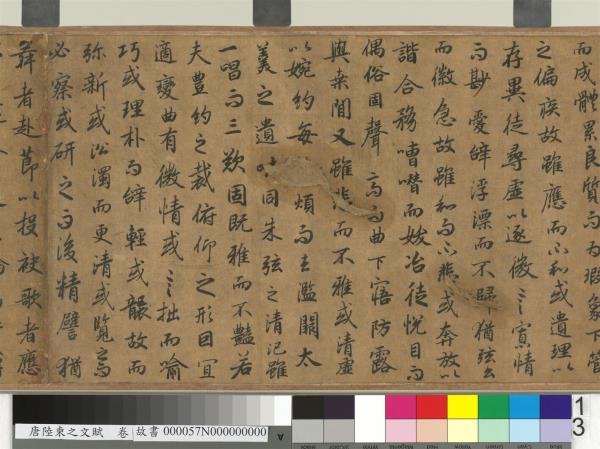 而成體累良質而為瑕象下管
之偏疾故雖應而不和或遺理以
存異徒尋虛以逐微言寡情
而尠愛辭浮漂而不歸猶弦么
而徽急故雖和而不悲或奔放以
諧合務嘈囋而妖冶徒悅目而
偶俗固聲高而曲下寤防露
與桑間又雖悲而不雅或清虛
以婉約每煩而去濫闕太
羹之遺味同朱弦之清氾雖
一唱而三歎固既雅而不豔若
夫豐約之裁俯仰之形因宜
適變曲有微情或言拙而喻
巧或理朴而辭輕或襲故而
彌新或沿濁而更清或覽之而
必察或研之而後精譬猶
舞者赴節以投袂歌者應
唐陸柬之文賦 卷 故書 000057N000000000
A
13